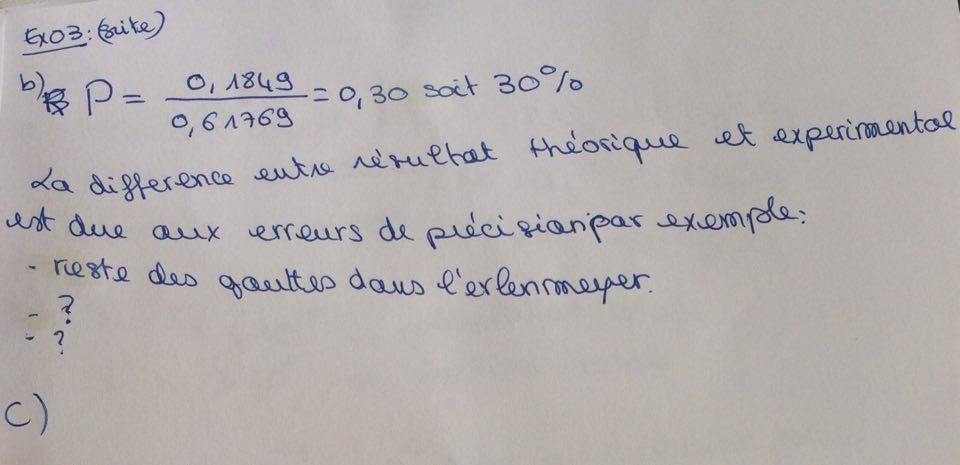 Exo3: (suite)
b) P = 0,1849 / 0,61769 = 0,30 soit 30%
La difference entre résultat théorique et experimental
est due aux erreurs de précision par exemple:
- reste des gouttes dans l'erlenmeyer.
- ?
- ?
C)